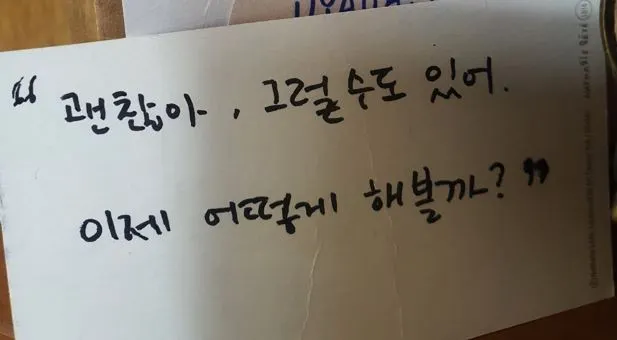 "괜찮아, 그럴수도 있어.
이제 어떻게 해볼까?"